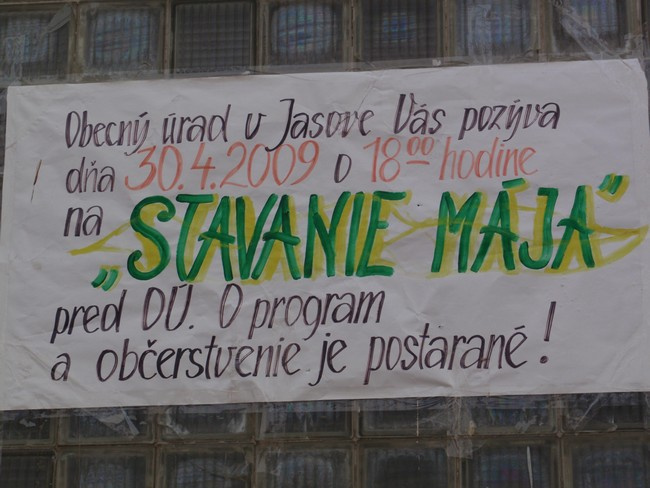 Obecný úrad v Jasove Vás pozýva
dňa 30.4.2009 o 18⁰⁰ hodine
na
„STAVANIE MÁJA"
pred OÚ. O program
a občerstvenie je postarané!